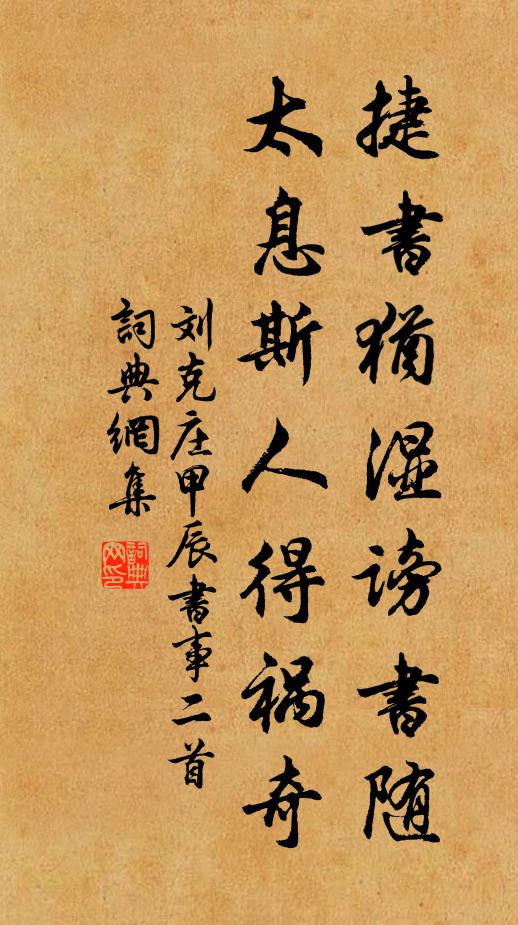 捷書猶湿謗書随
太息斯人得禍奇
刘克庄甲辰書事二首
詞典網集
詞典
网印